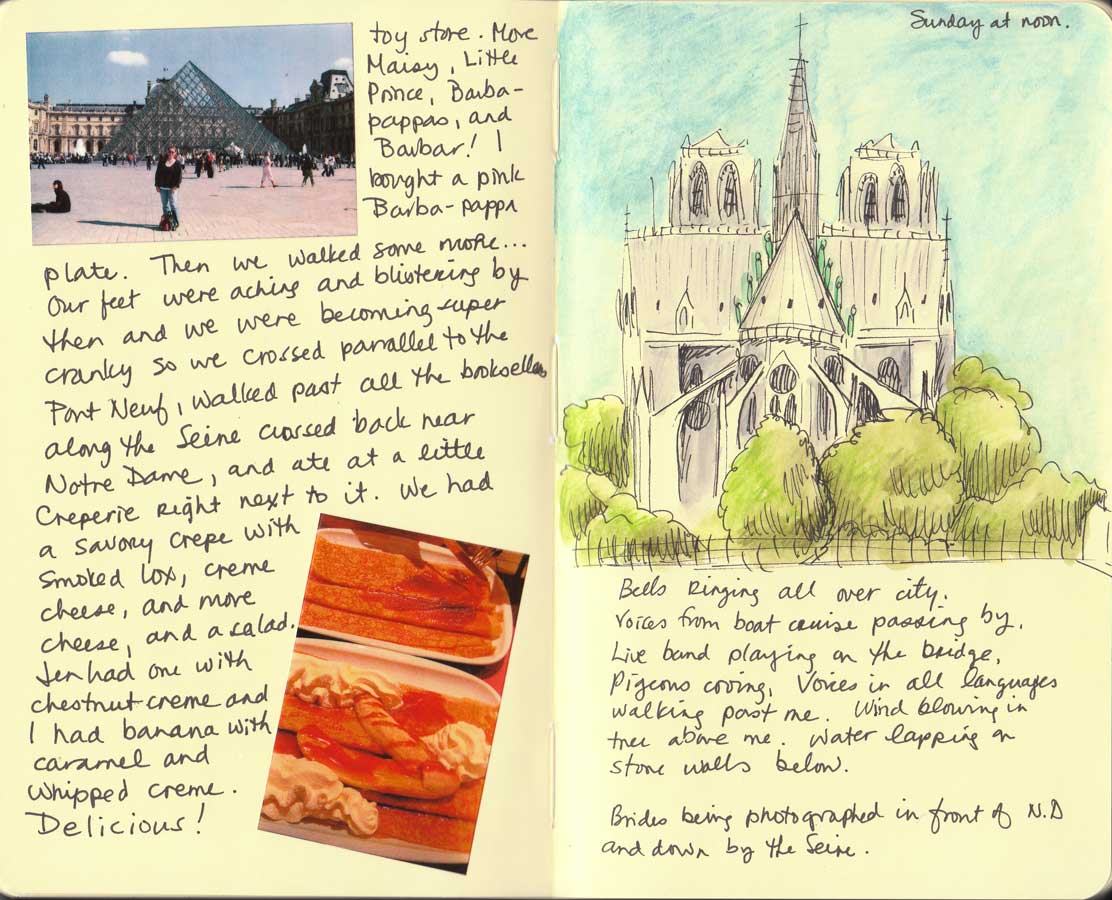 toy store. More
Maisy, Little
Prince, Barba-
pappas, and
Barbar! I
bought a pink
Barba-pappa
plate. Then we walked some more...
Our feet were aching and blistering by
then and we were becoming super
cranky so we crossed parrallel to the
Pont Neuf, walked past all the booksellers
along the Seine crossed back near
Notre Dame, and ate at a little
Creperie right next to it. We had
a savory crepe with
smoked lox, creme
cheese, and more
cheese, and a salad.
Jen had one with
chestnut creme and
I had banana with
caramel and
whipped creme.
Delicious!
Sunday at noon.
Bells Ringing all over city.
Voices from boat cruise passing by.
Live band playing on the bridge.
Pigeons cooing, Voices in all languages
walking past me. Wind blowing in
tree above me. Water lapping on
stone walls below.
Brides being photographed in front of N.D
and down by the Seine.